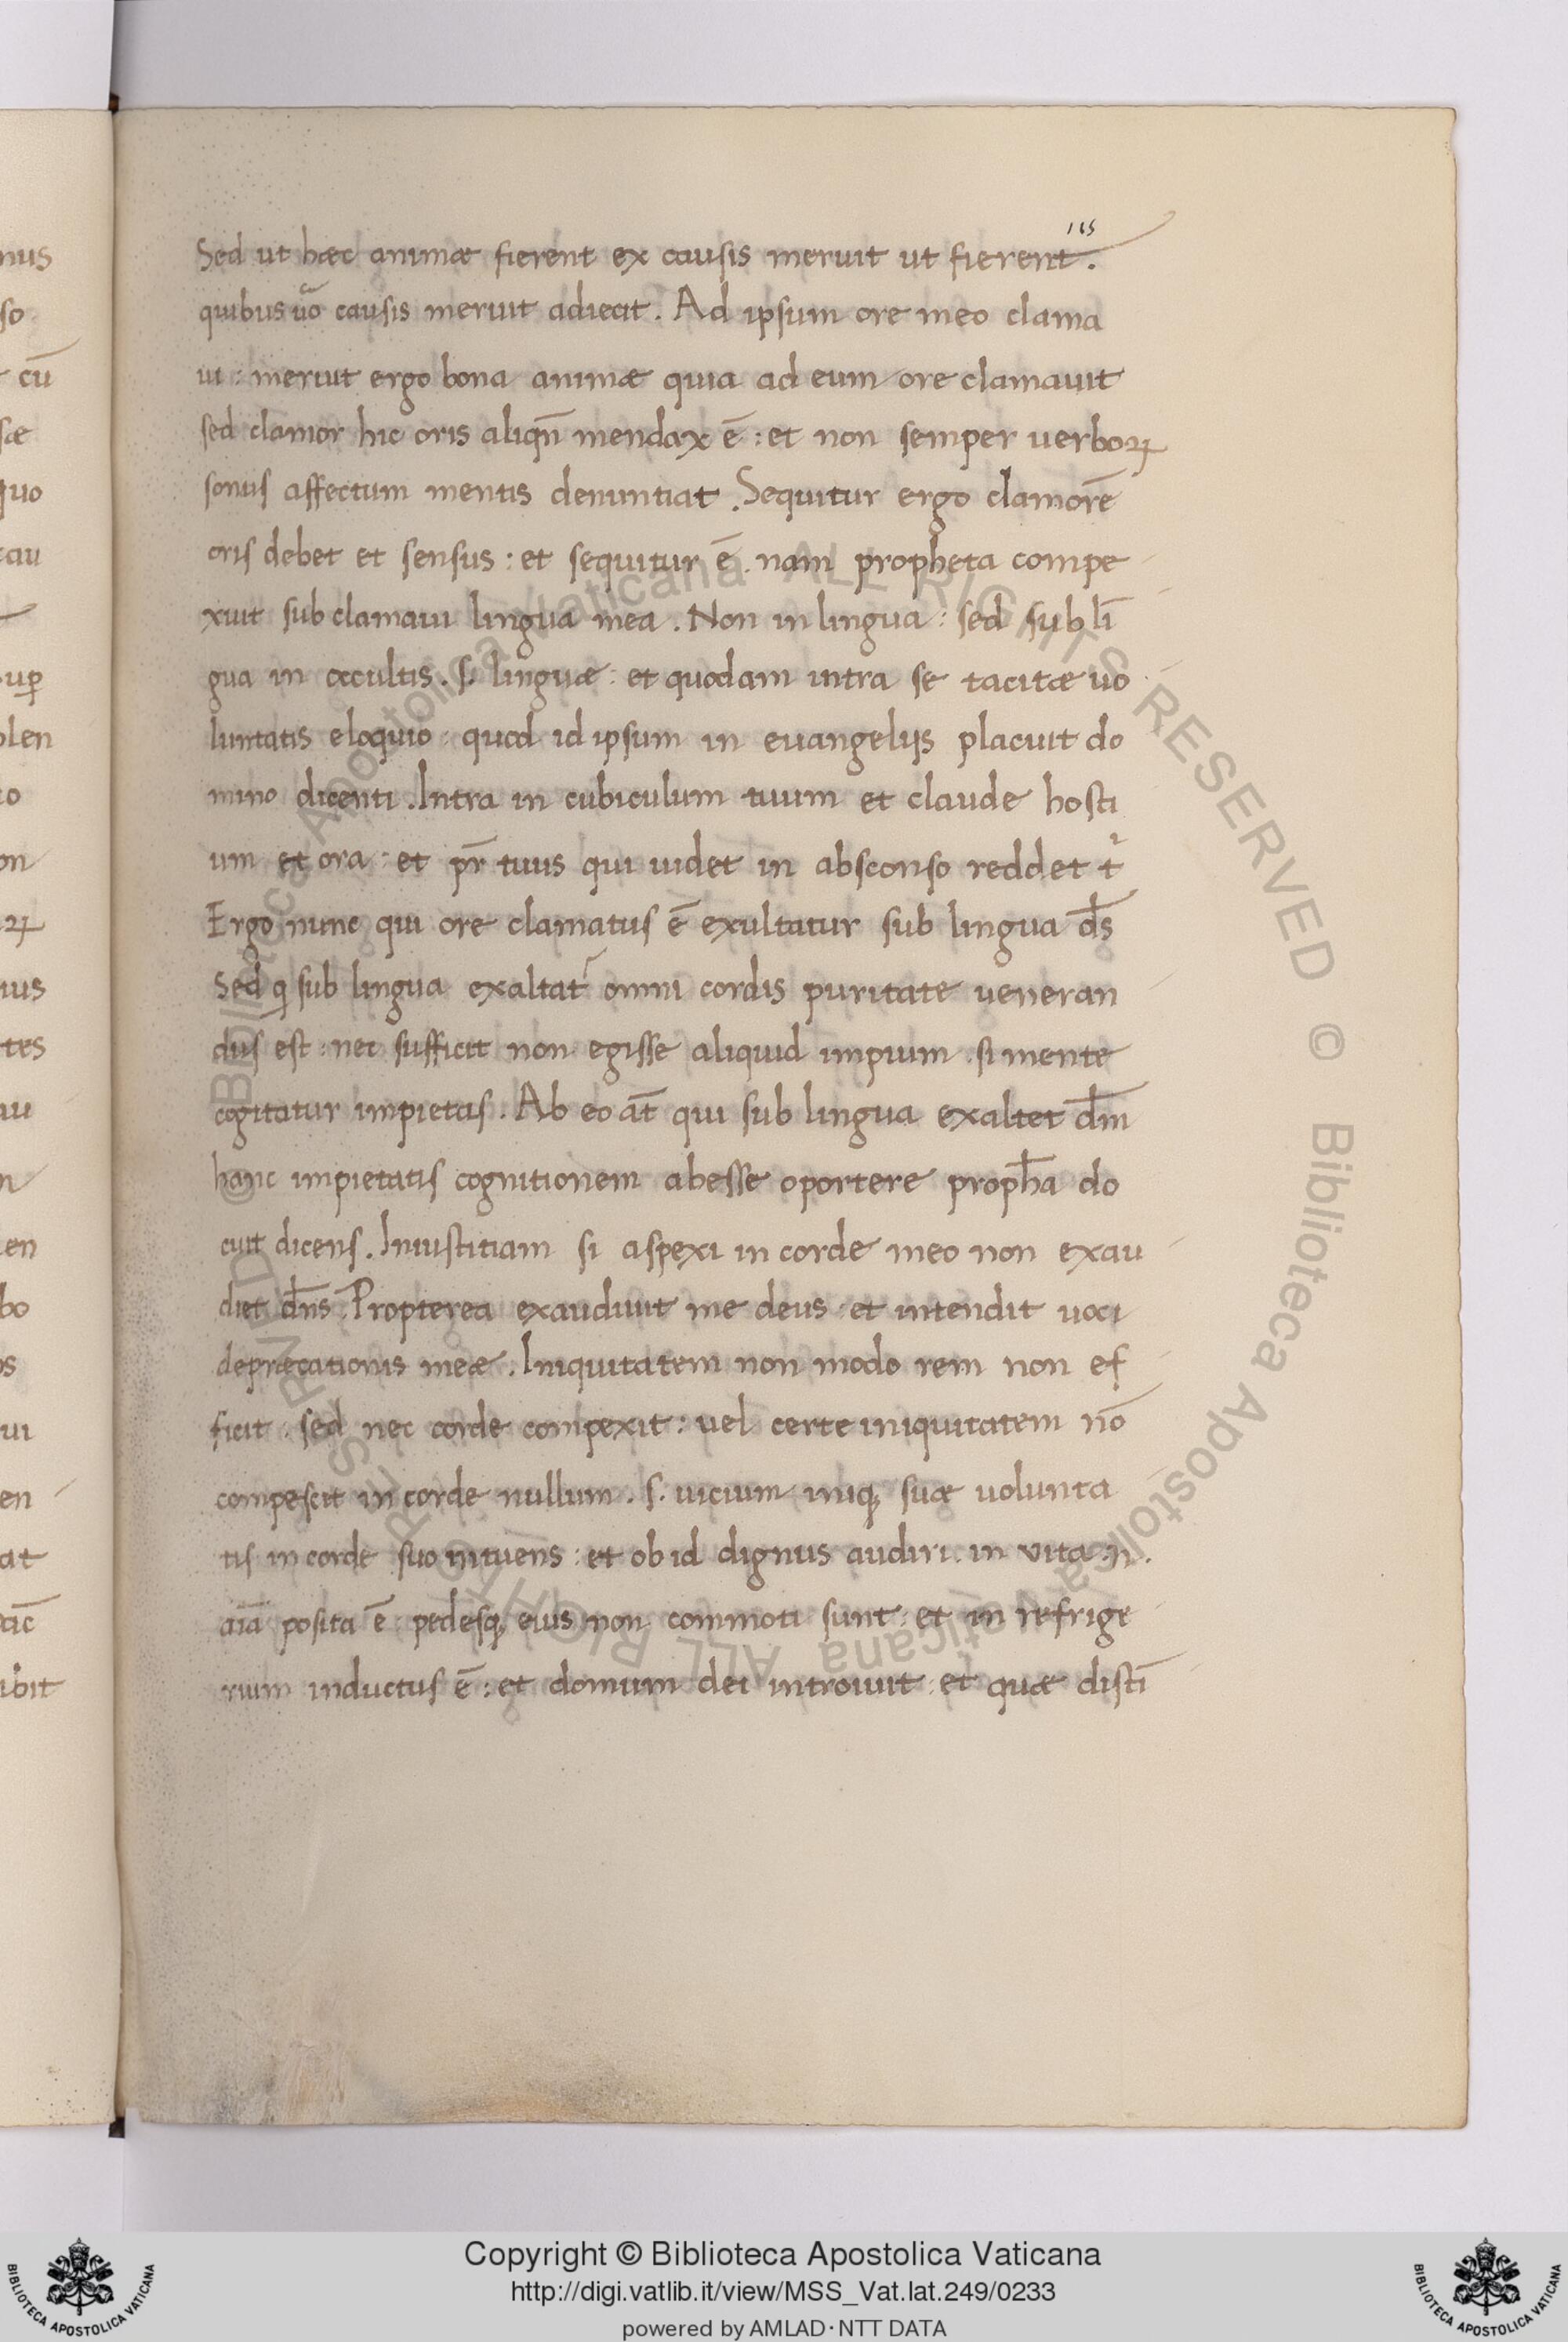 115
Sed ut hæc animæ fierent ex causis meruit ut fierent.
quibus uo causis meruit adiecit. Ad ipsum ore meo clama
ui: meruit ergo bona animæ quia ad eum ore clamauit
sed clamor hic oris aliqn̄ mendax ē: et non semper uerboꝝ
sonus affectum mentis denuntiat. Sequitur ergo clamorē
oris debet et sensus: et sequitur ē. nam propheta compe
xuit sub clamaui lingua mea. Non in lingua: sed sub lī
gua in occultis. s. linguæ: et quodam intra se tacitæ uo
luntatis eloquio: quod id ipsum in euangelijs placuit do
mino dicenti. Intra in cubiculum tuum et claude hosti
um et ora: et pr̄ tuus qui uidet in absconso reddet t
Ergo nunc qui ore clamatus ē exultatur sub lingua ds̄
Sed q sub lingua exaltat omni cordis puritate ueneran
dus est: nec sufficit non egisse aliquid impium si mente
cogitatur impietas. Ab eo at̄ qui sub lingua exaltet dm̄
hanc impietatis cognitionem abesse oportere proph̄a do
cuit dicens. Iniustitiam si aspexi in corde meo non exau
diet dn̄s. Propterea exaudiuit me deus et intendit uoci
depræcationis meæ. Iniquitatem non modo rem non ef
ficit. sed nec corde compexit: uel certe iniquitatem nō
compescit in corde nullum. s. uicium iniqꝫ suæ uolunta
tis in corde suo intuens: et ob id dignus audiri. in vita. n.
aīa posita ē: pedesqꝫ eius non commoti sunt: et in refrige
rium inductus ē: et domum dei introiuit: et quæ distī
nus
so
cū
sæ
quo
cau
olen
on
ius
tes
au
en
bo
os
ui
en
at
ibit
© Biblioteca Apostolica Vaticana ALL RIGHTS RESERVED © Biblioteca Apostolica Vaticana ALL RIGHTS RESERVED
Copyright © Biblioteca Apostolica Vaticana
http://digi.vatlib.it/view/MSS_Vat.lat.249/0233
powered by AMLAD·NTT DATA
BIBLIOTECA APOSTOLICA VATICANA
BIBLIOTECA APOSTOLICA VATICANA